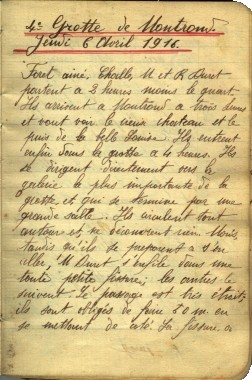 4e Grotte de Montrond.
Jeudi 6 Avril 1916.
Fort ainé, Choulle, M et R Duret
partent à 2 heures moins le quart.
Ils arrivent à Montrond à trois heures
et vont voir le vieux chateau et le
puis de la belle Louise. Ils entrent
enfin dans la grotte à 4 heures. Ils
se dirigent directement vers la
galerie la plus importante de la
grotte et qui se termine par une
grande salle. Ils circulent tout
autour et ne découvrent rien. Mais
tandis qu'ils se préparent à s'en
aller, M Duret s'enfile dans une
toute petite fissure; les autres le
suivent. Le passage est très étroit;
ils sont obligés de faire 20 m. en
se mettant de coté. La fissure a